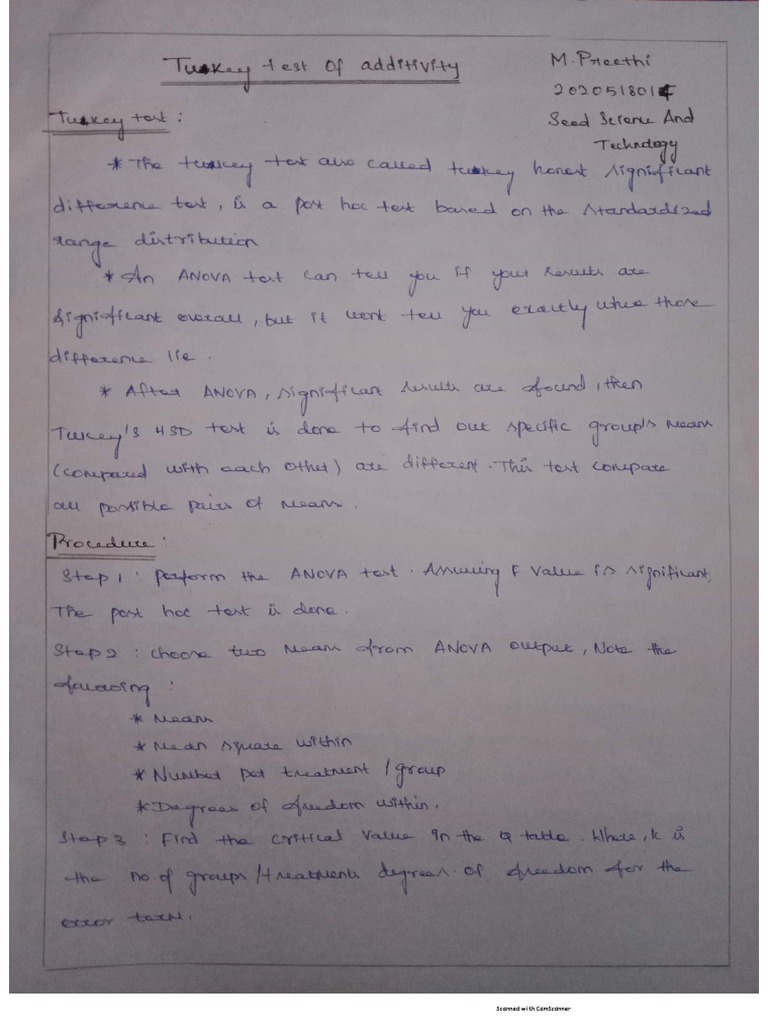 Tuskey test of additivity
M. Preethi
2020518014
Seed Science And
Technology
Tuskey test :
* The tuskey test also called tuskey honest significant
difference test, is a post hoc test based on the standardized
range distribution
* An ANOVA test can tell you if your results are
significant overall, but it wont tell you exactly where those
difference lie .
* After ANOVA, significant results are found, then
Turkey's HSD test is done to find out specific group's means
(compared with each other) are different. This test compare
all possible pairs of means .
Procedure :
Step 1 : perform the ANOVA test . Assuming F value is significant,
The post hoc test is done .
Step 2 : choose two means from ANOVA output, Note the
following :
* Means
* Mean square within
* Number per treatment / group
* Degrees of freedom within.
Step 3 : Find the critical value in the Q table. Where, k is
the no of groups / treatments degrees of freedom for the
error term.
Scanned with CamScanner